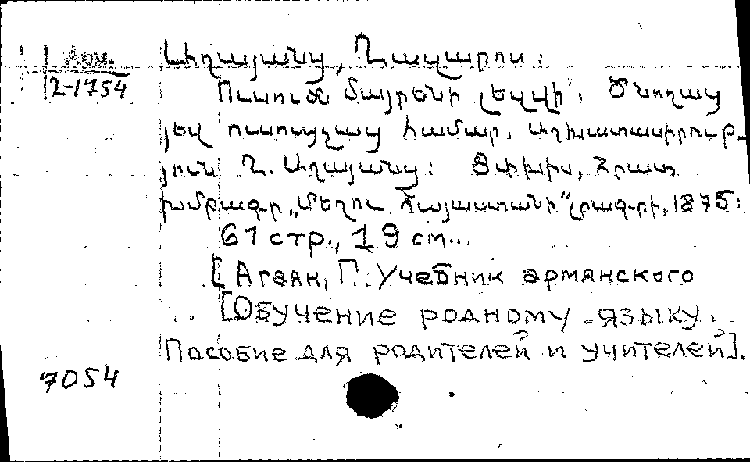 Арм.
2-1754
Աղայանց, Ղազարոս:
Ուսումն մայրենի լեզվի: Ծնողաց
յեվ ուսուցչաց համար. աշխատասիրութ-
յուն Ղ. Աղայանց: Թիֆլիս, Հրատ.
խմբագր. „Մեղու Հայաստանի” լրագրի, 1875:
61 стр., 19 см...
[Агаян, П. Учебник армянского
[Обучение родному языку.
Пособие для родителей и учителей].
7054